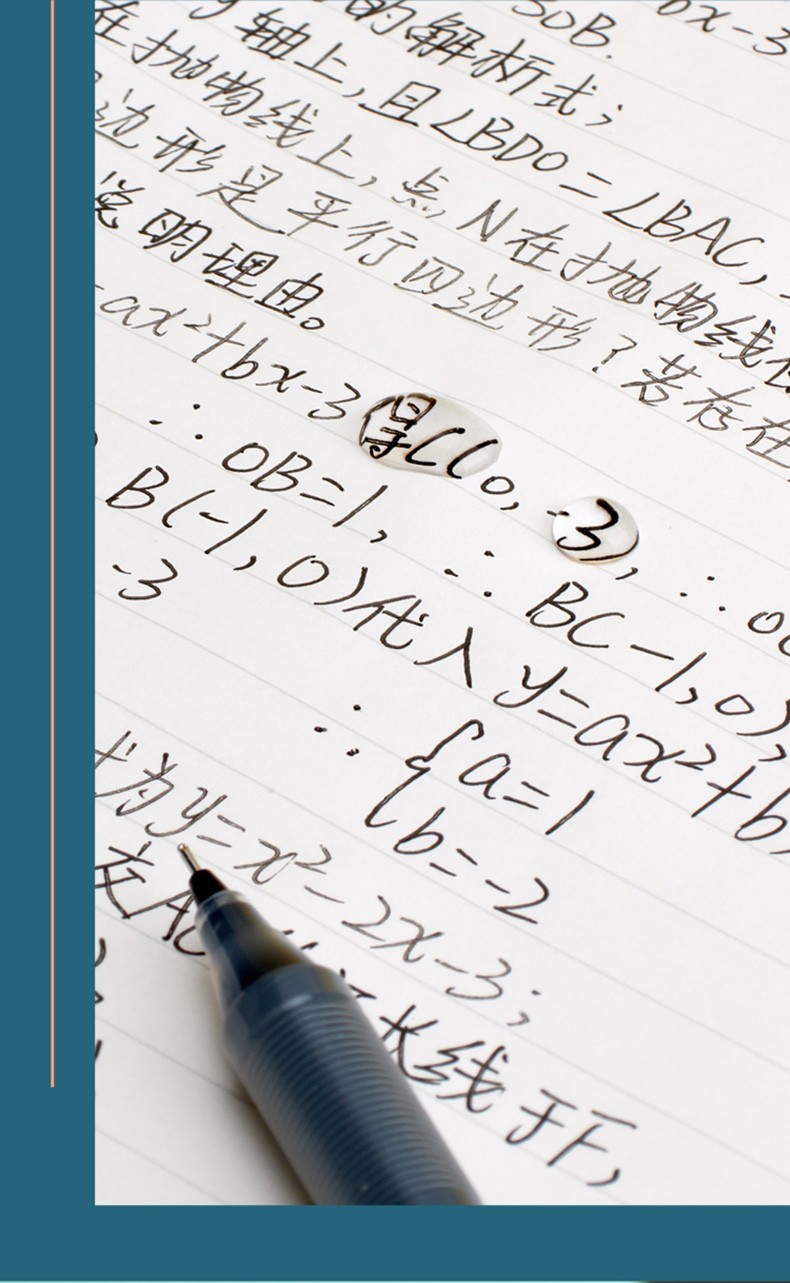 3OB. bx-3
的解析式;
轴上,且∠BDO=∠BAC,
在抛物线上,点N在抛物线
边形是平行四边形?若存在
说明理由。
=ax²+bx-3得C(0,-3),∴
∴OB=1,∴B(-1,0),
B(-1,0)代入y=ax²+b
-3
∴{a=1
b=-2
为y=x²-2x-3;
交AC 长线于F,